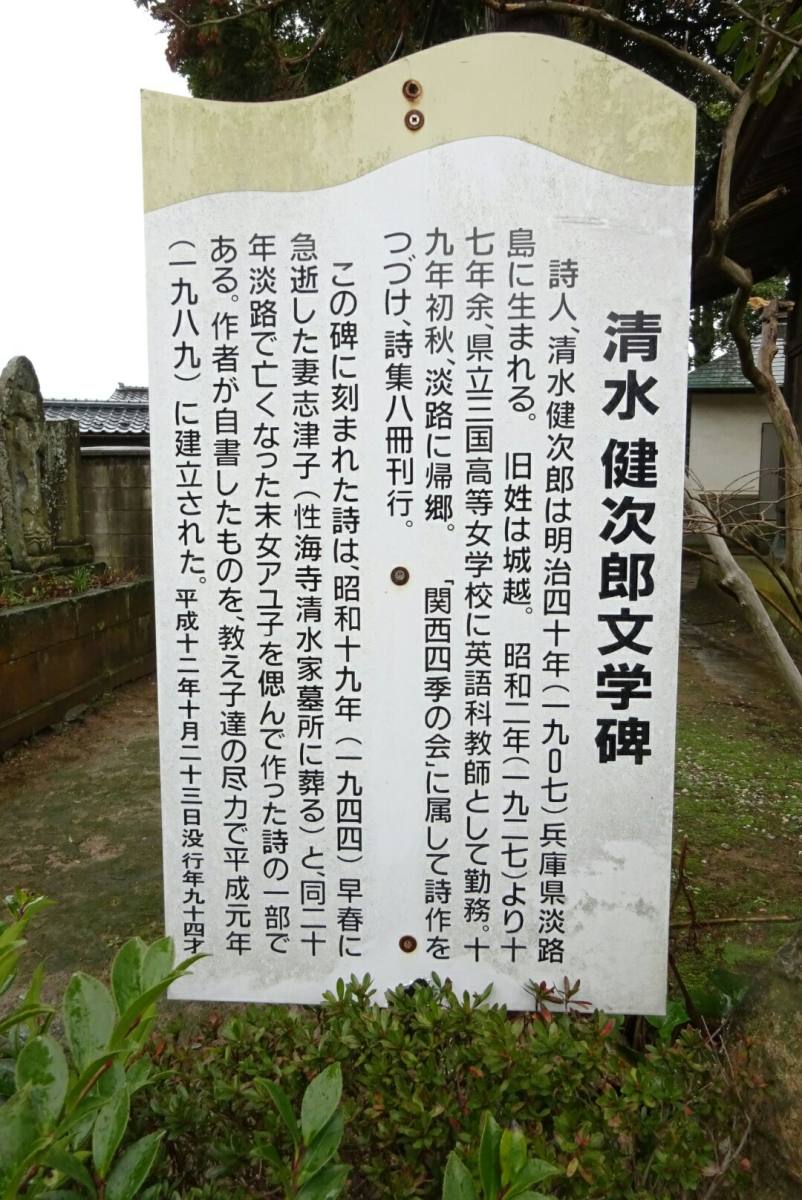 清水 健次郎文学碑
詩人、清水健次郎は明治四十年(一九0七)兵庫県淡路
島に生まれる。 旧姓は城越。 昭和二年(一九二七)より十
七年余、県立三国高等女学校に英語科教師として勤務。十
九年初秋、淡路に帰郷。 「関西四季の会」に属して詩作を
つづけ、詩集八冊刊行。
この碑に刻まれた詩は、昭和十九年(一九四四)早春に
急逝した妻志津子(性海寺清水家墓所に葬る)と、同二十
年淡路で亡くなった末女アユ子を偲んで作った詩の一部で
ある。作者が自書したものを、教え子達の尽力で平成元年
(一九八九)に建立された。平成十二年十月二十三日没行年九十四才